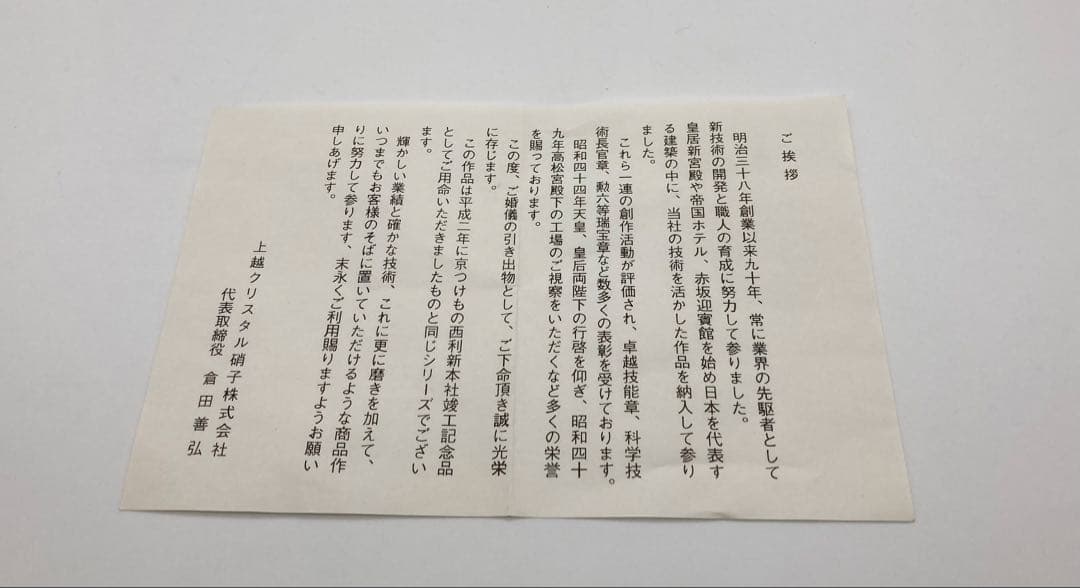 ご挨拶
明治三十八年創業以来九十年、常に業界の先駆者として
新技術の開発と職人の育成に努力して参りました。
皇居新宮殿や帝国ホテル、赤坂迎賓館を始め日本を代表す
る建築の中に、当社の技術を活かした作品を納入して参り
ました。
これら一連の創作活動が評価され、卓越技能章、科学技
術長官章、勲六等瑞宝章など数多くの表彰を受けております。
昭和四十四年天皇、皇后両陛下の行啓を仰ぎ、昭和四十
九年高松宮殿下の工場のご視察をいただくなど多くの栄誉
を賜っております。
この度、ご婚儀の引き出物として、ご下命頂き誠に光栄
に存じます。
この作品は平成二年に京つけもの西利新本社竣工記念品
としてご用命いただきましたものと同じシリーズでござい
ます。
輝かしい業績と確かな技術、これに更に磨きを加えて、
いつまでもお客様のそばに置いていただけるような商品作
りに努力して参ります、末永くご利用賜りますようお願い
申しあげます。
上越クリスタル硝子株式会社
代表取締役 倉田善弘